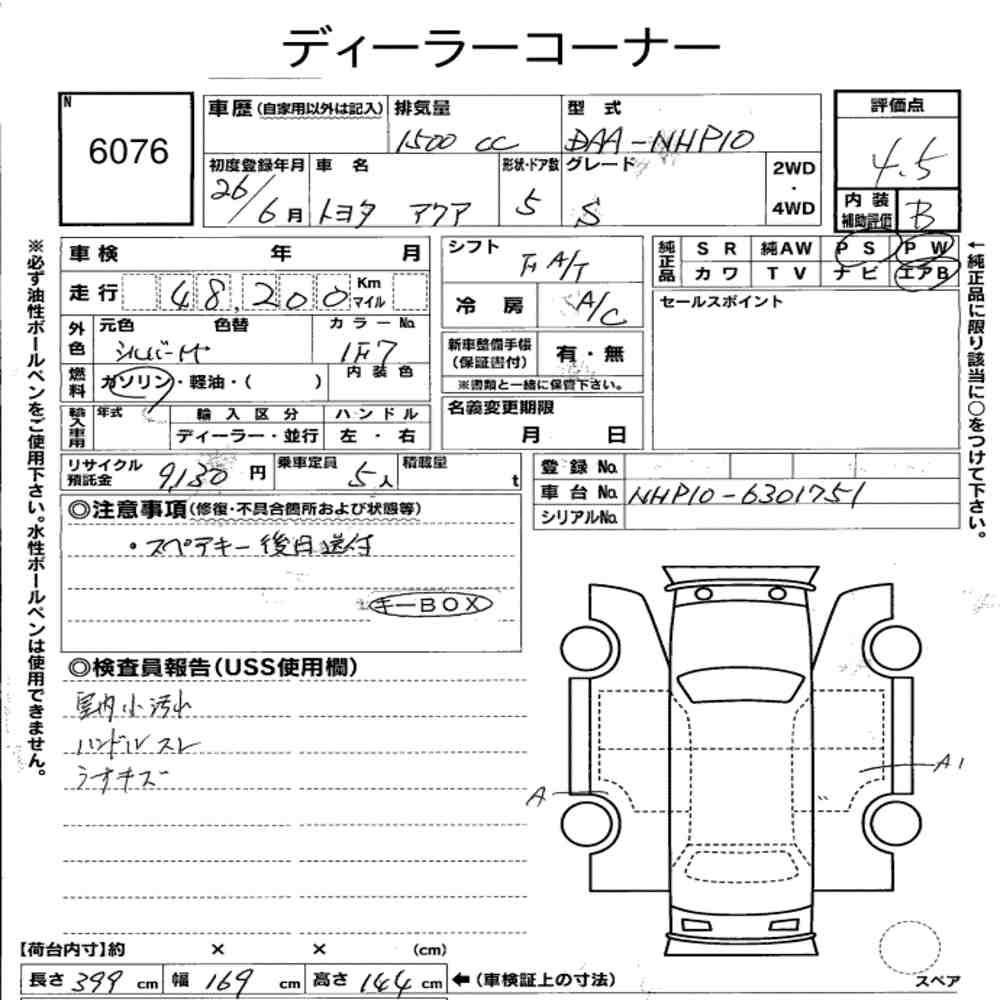 ディーラーコーナー
N
6076
車歴 (自家用以外は記入) 排気量 型式
1500 cc DAA-NHP10
初度登録年月 車名 形状・ドア数 グレード 2WD・4WD
26/6月 トヨタ アクア 5 S
評価点
4.5
内装補助評価 B
車検 年 月
走行 48,200 Km マイル
外色 元色 色替 カラーNo.
シルバーM 1F7
燃料 ガソリン・軽油・( ) 内装色
輸入車用 年式 輸入区分 ハンドル
ディーラー・並行 左・右
シフト A/T
冷房 A/C
新車整備手帳(保証書付) 有・無
※書類と一緒に保管下さい。
名義変更期限
月 日
純正品 SR 純AW PS PW
カワ TV ナビ エアB
セールスポイント
※必ず油性ボールペンをご使用下さい。水性ボールペンは使用できません。
←純正品に限り該当に○をつけて下さい。
リサイクル預託金 9,130円 乗車定員 5人 積載量 t
登録No.
車台No. NHP10-6301751
シリアルNo.
◎注意事項(修復・不具合箇所および状態等)
・スペアキー後日送付
キーBOX
◎検査員報告(USS使用欄)
室内小汚れ
ハンドルスレ
うすキズ
A
A1
【荷台内寸】約 × × (cm)
長さ 399 cm 幅 169 cm 高さ 144 cm ←(車検証上の寸法)
スペア